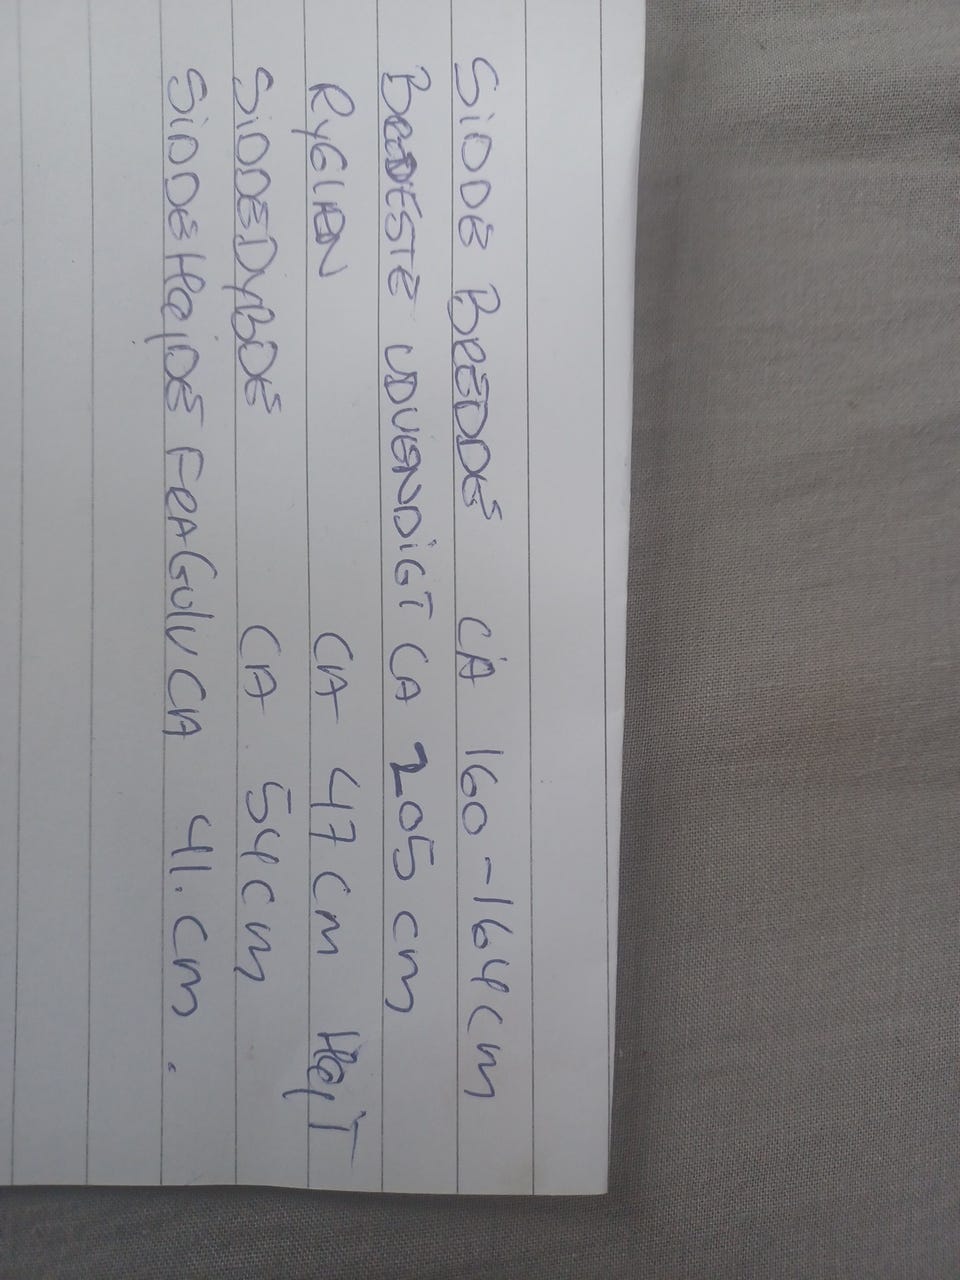 SiDDE BREDDE CA 160-164 cm
BREDESTE UDVENDIGT CA 205 cm
RYGLÆN CA 47 cm HøjT
SiDDEDYBDE CA 54 cm
SiDDEHøjDE FRA GULV CA 41. cm.